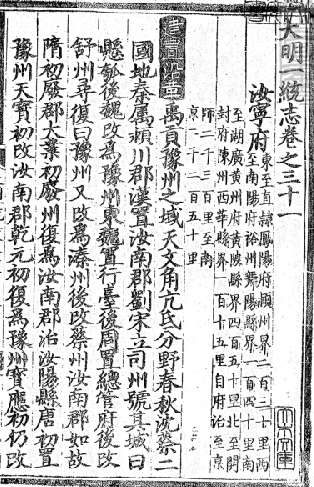 大明一統志卷之三十一
汝寧府
東至直隸鳳陽府潁州界二百三十里西
至南陽府裕州舞陽縣界一百四十里南
至湖廣黃州府黃陂縣界四百五十里北至開
封府陳州西華縣界一百一十五里自府治至京
師二千三百里至南
京一千二百五十里
建置沿革 禹貢豫州之域天文角亢氐分野春秋沈蔡二
國地秦屬潁川郡漢置汝南郡劉宋立司州號其城曰
懸瓠後魏改為豫州東魏置行臺後周置總管府後改
舒州尋復曰豫州又改為溱州後改蔡州汝南郡如故
隋初廢郡大業初廢州復為汝南郡治汝陽縣唐初置
豫州天寶初改汝南郡乾元初復為豫州寶應初仍改